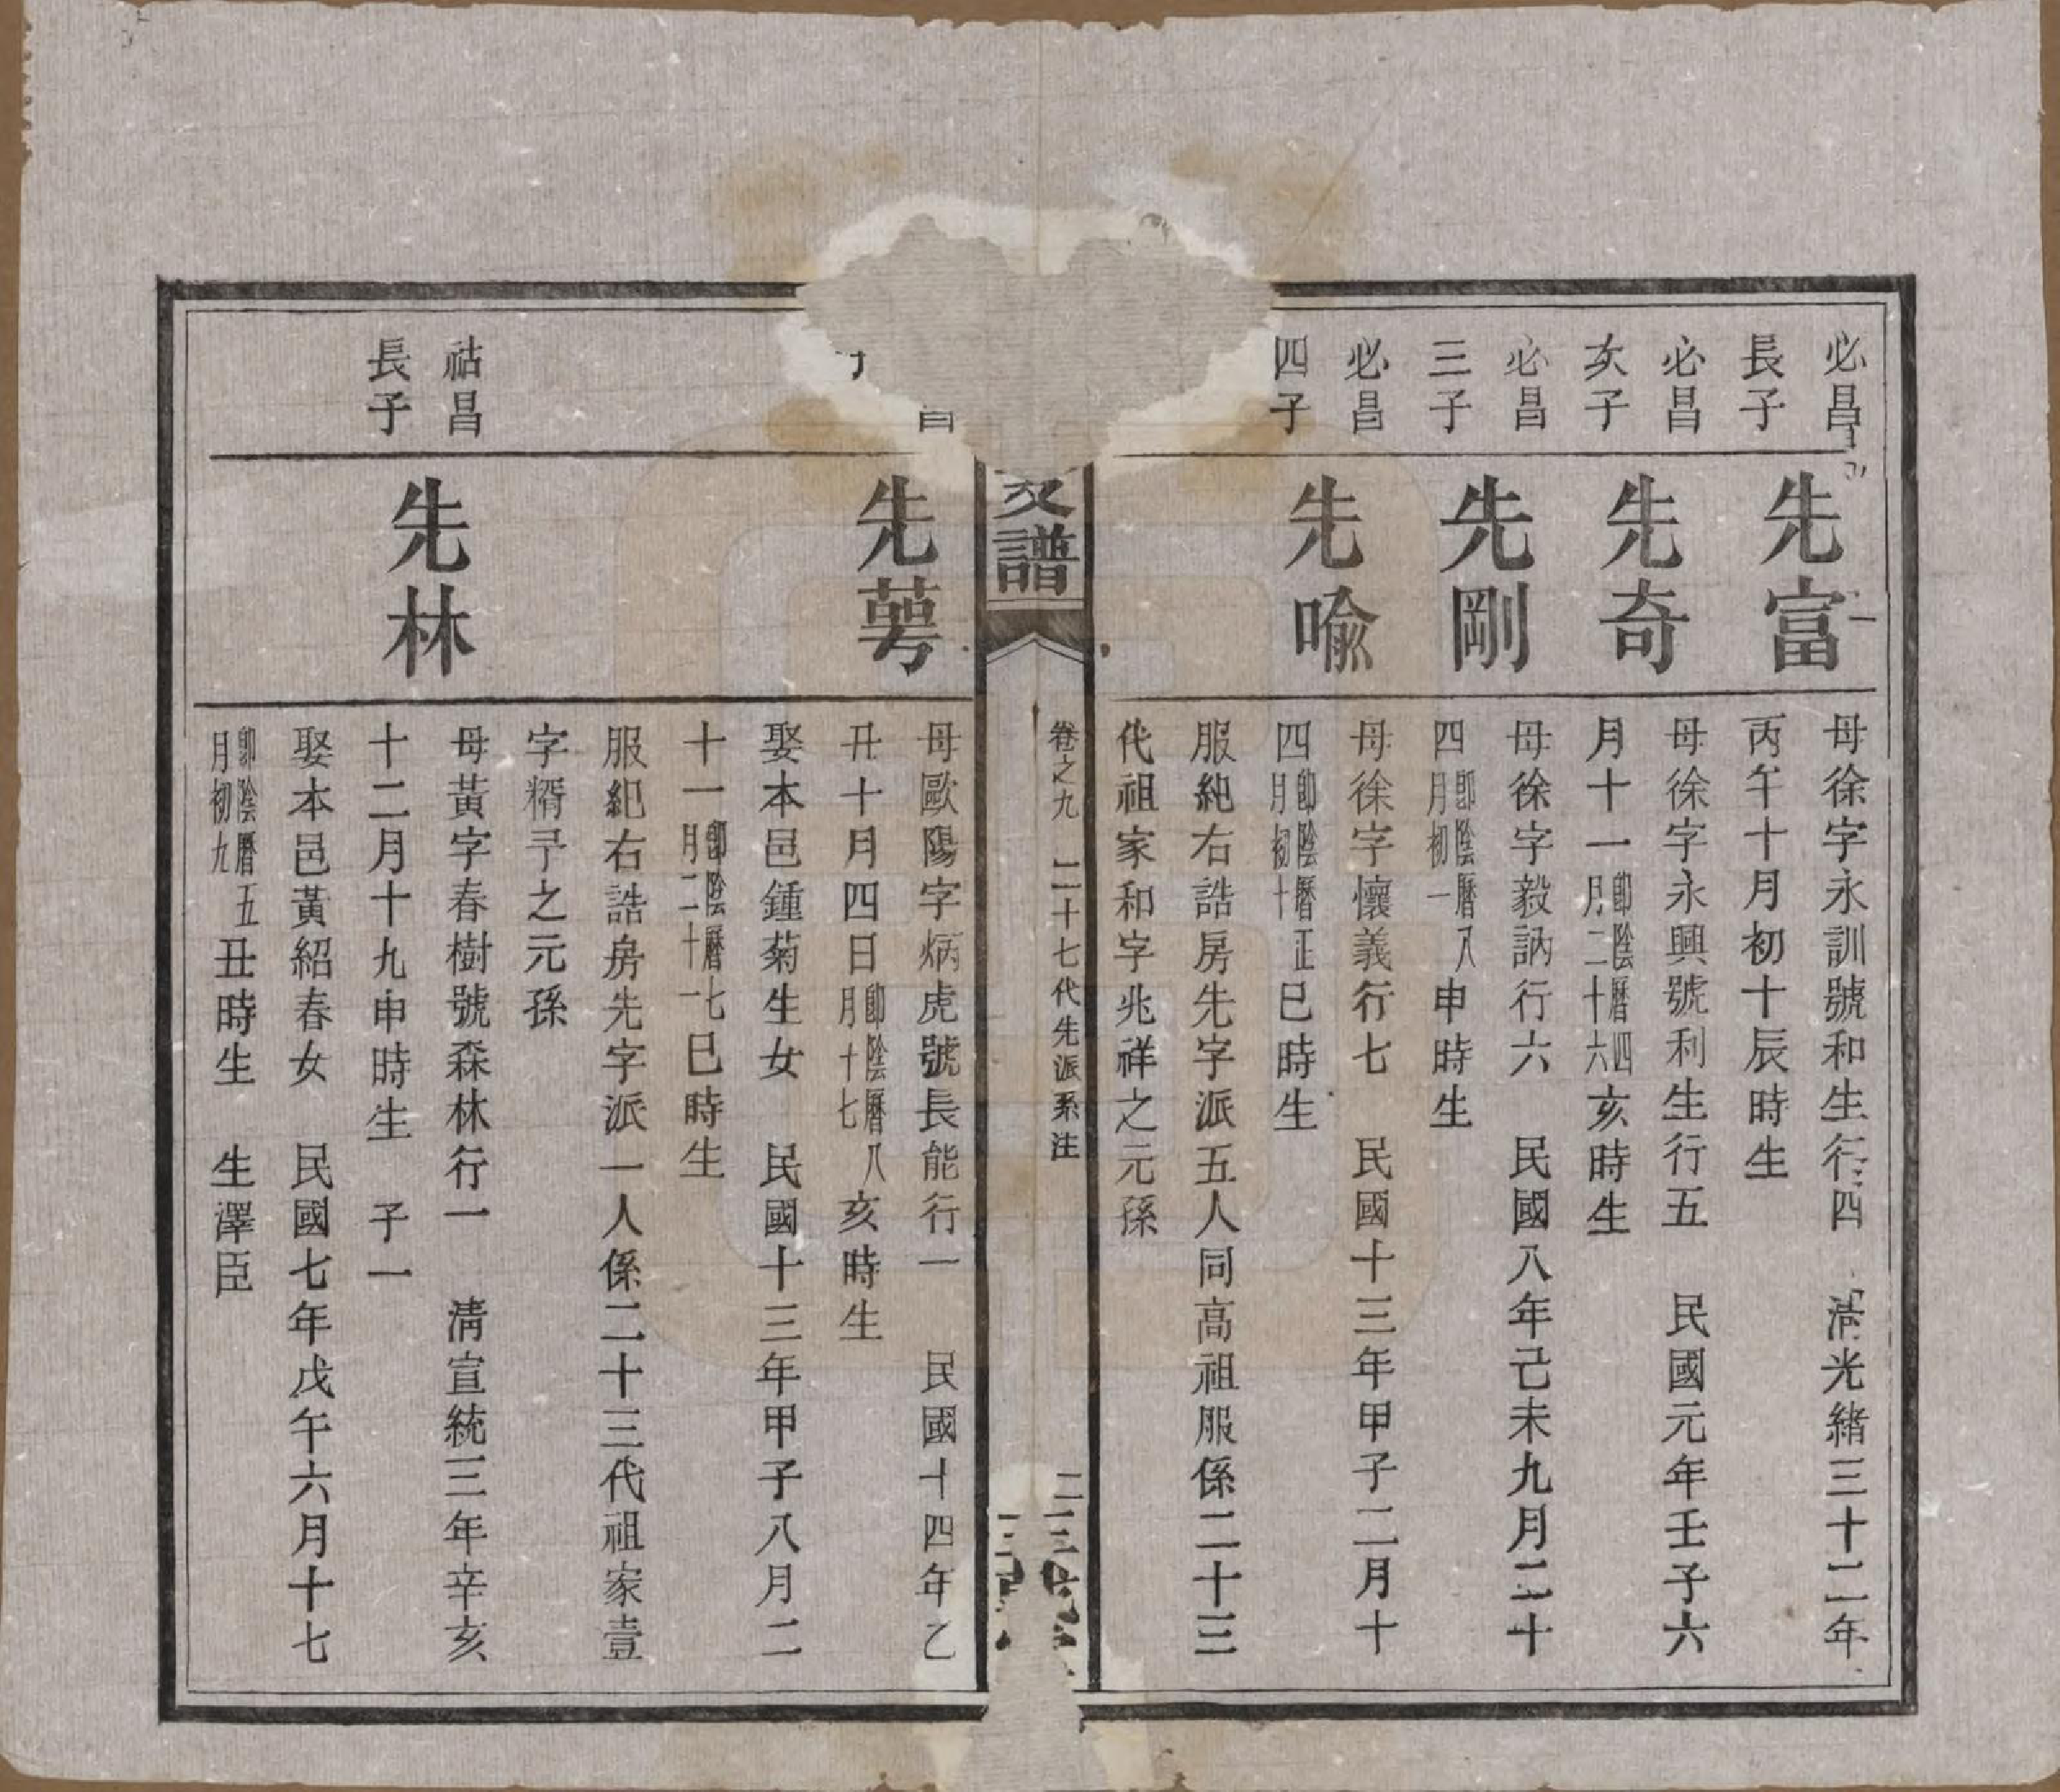 必昌
長子
先富
母徐字永訓號和生行四 清光緒三十二年
丙午十月初十辰時生
必昌
次子
先奇
母徐字永興號利生行五 民國元年壬子六
月十一即陰曆四月二十六亥時生
必昌
三子
先剛
母徐字毅訥行六 民國八年己未九月二十
四即陰曆八月初一申時生
必昌
四子
先喩
母徐字懷義行七 民國十三年甲子二月十
四即陰曆正月初十巳時生
服紀右誥房先字派五人同高祖服係二十三
代祖家和字兆祥之元孫
支譜
卷之九 二十七代先派系注
昌
先蕚
母歐陽字炳虎號長能行一 民國十四年乙
丑十月四日即陰曆八月十七亥時生
娶本邑鍾菊生女 民國十三年甲子八月二
十一即陰曆七月二十一巳時生
服紀右誥房先字派一人係二十三代祖家壹
字糈予之元孫
祜昌
長子
先林
母黃字春樹號森林行一 淸宣統三年辛亥
十二月十九申時生 子一
娶本邑黃紹春女 民國七年戊午六月十七
即陰曆五月初九丑時生 生澤臣